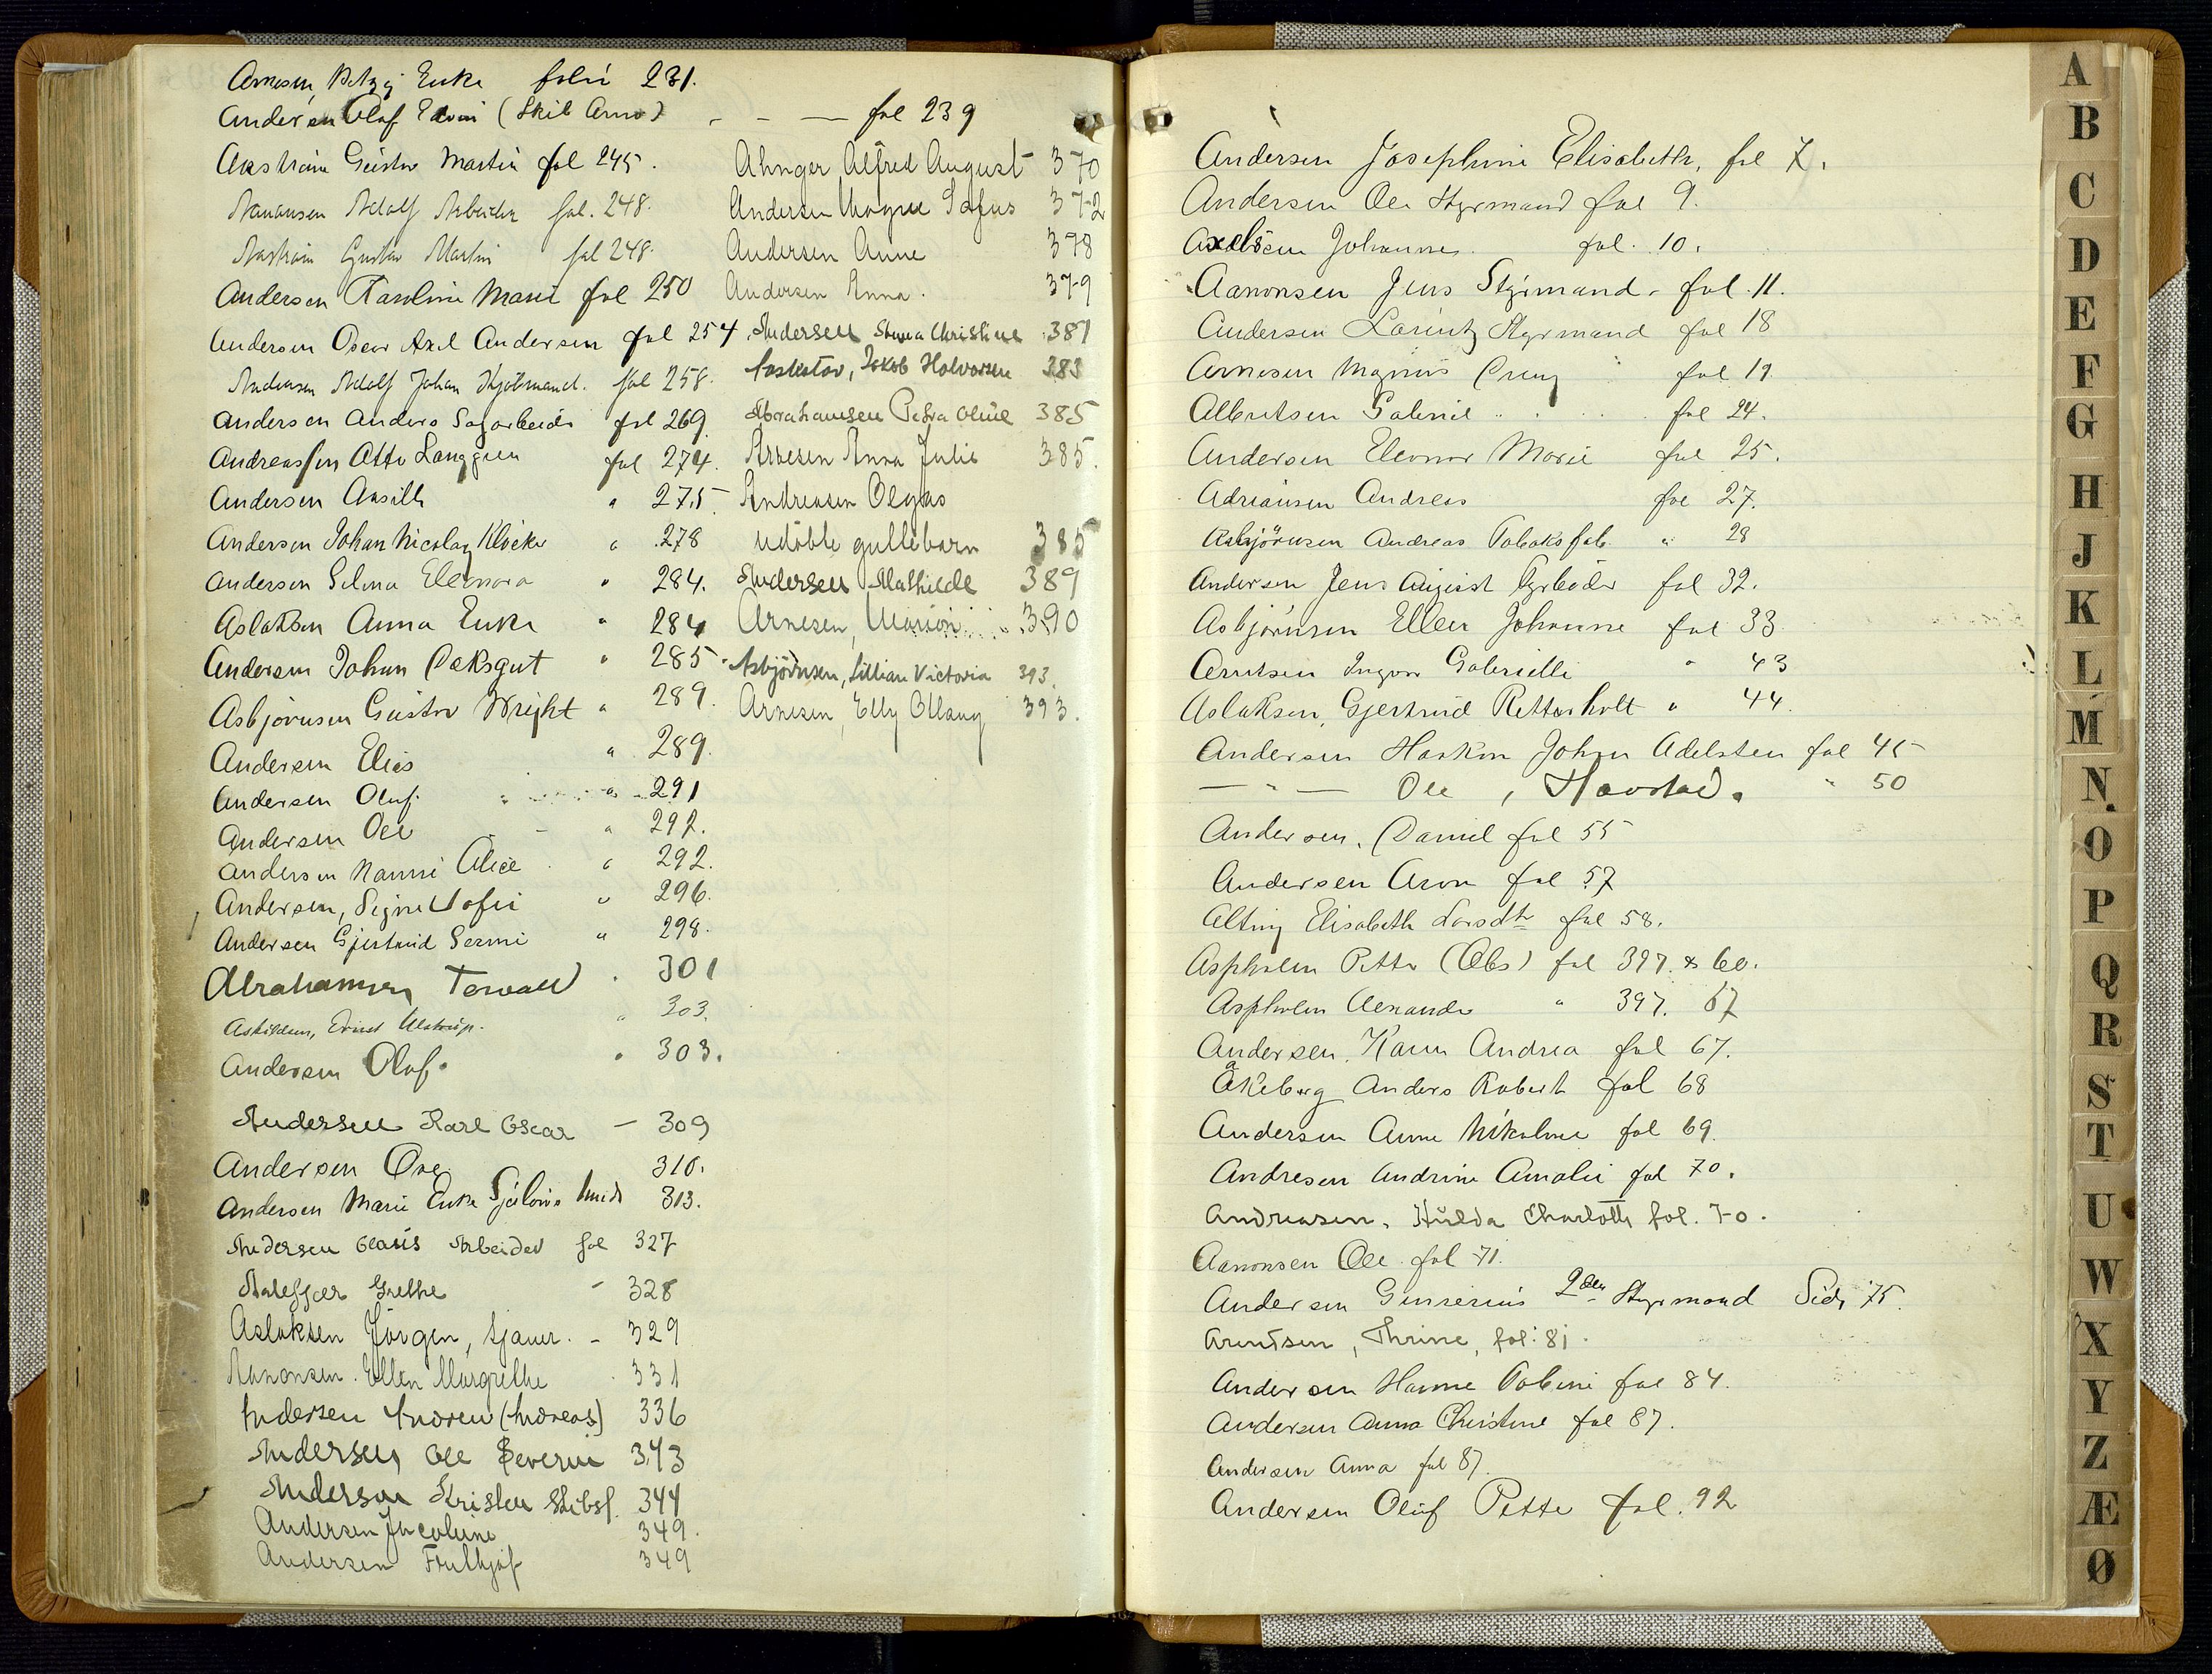 Arnesen, Betzy Enke folio 231.
Andersen Oluf Edvin (Skib Arno) - - — fol 239
Akström Gustav Martin fol 245.
Aanonsen Adolf Arbeider fol. 248.
Gustav Martin fol 248.
Andersen Karoline Marie fol 250
Andersen Oscar Axel Andersen fol 254
Andersen Adolf Johan Kjøbmand. fol 258.
Andersen Anders Sagarbeider fol 269.
Andreassen Otto Langgren fol 274.
Andersen " 275
Andersen Johan Nicolay Klocker " 278
Andersen Selma Eleonora " 284.
Aslaksen Anna Enke " 284
Andersen Johan Baksgut " 285
Asbjørnsen Gustav Wright " 289.
Andersen Elias " 289.
Andersen Oluf. " 291
Andersen Ole " 292.
Andersen Nanni Alice " 292.
Andersen, Signe Sofie " 296.
Andersen Gjertrud Sermi " 298.
Abrahamsen, Torvald " 301
Askildsen, Ernst Ulstrup. " 303.
Andersen Oluf. " 303.
Andersen Karl Oscar — 309
Andersen Ove 310.
Andersen Marie Enke 313.
Andersen Arbeider fol 327
Grethe - 328
Aslaksen Jörgen, Sjauer. - 329
Aanonsen. Ellen Margrethe 331
Andersen Andren (Andreas) 336
Andersen Ole Severin 343
Andersen Kristen Skibsf. 344
Andersen Jacobine 349.
Andersen Frithjof 349
Ahnger, Alfred August 370
Andersen Magne Sofus 372
Andersen Anne 378
Andersen Anna. 379
Andersen Christine 381
Jakob Halvorsen 383
Abrahamsen Petra Oline 385
Arnesen Anna Julie 385.
Andreasen Olgas
udöbte guttebarn 385
Andersen Mathilde 389
Arnesen, Marion 390
Asbjörnsen, Lillian Victoria 393.
Arnesen, Elly Ollaug 393.
Andersen Josephine Elisabeth, fol 7.
Andersen Ole Styrmand fol 9.
Axelsen Johannes. fol. 10.
Aanonsen Jens Styrmand. fol. 11.
Andersen Lorentz Styrmand fol 18
Arnesen Magnus Preuz fol 19
Albretsen Gabriel fol 24.
Andersen Eleonor Marie fol 25.
Adriansen Andreas fol 27.
Asbjörnsen Andreas Tobaksfab. " 28
Andersen Jens August Fyrböder fol 32.
Asbjørnsen Ellen Johanne fol 33
Arntsen Ingvar Gabrielle " 43
Aslaksen, Gjertrud Retterholt " 44.
Andersen Haakon John Adelsten fol 45
— " — Ole, Havstad. " 50
Andersen. Daniel fol 55
Andersen Aron fol 57
Alting Elisabeth Larsdtr fol 58.
Aspholm Petter (Obs) fol 397. & 60.
Aspholm Alexander " 397. 67
Andersen, Karen Andrea fol 67.
Åkeberg Anders Robert fol 68
Andersen Anne Nikoline fol 69.
Andresen Andrine Amalie fol 70.
Andreasen, Hulda Charlotte fol. 70.
Aanonsen Ole fol 71.
Andersen 2den Styrmand Side 75.
Arentsen, Thrine, fol: 81.
Andersen Hanne Tobine fol 84.
Andersen Anna Christine fol 87.
Andersen Anna fol 87.
Andersen Oluf Petter fol. 92
A
B
C
D
E
F
G
H
J
K
L
M
N.
O
P
Q
R
S
T
U
W
X
Y
Z
Æ
Ø